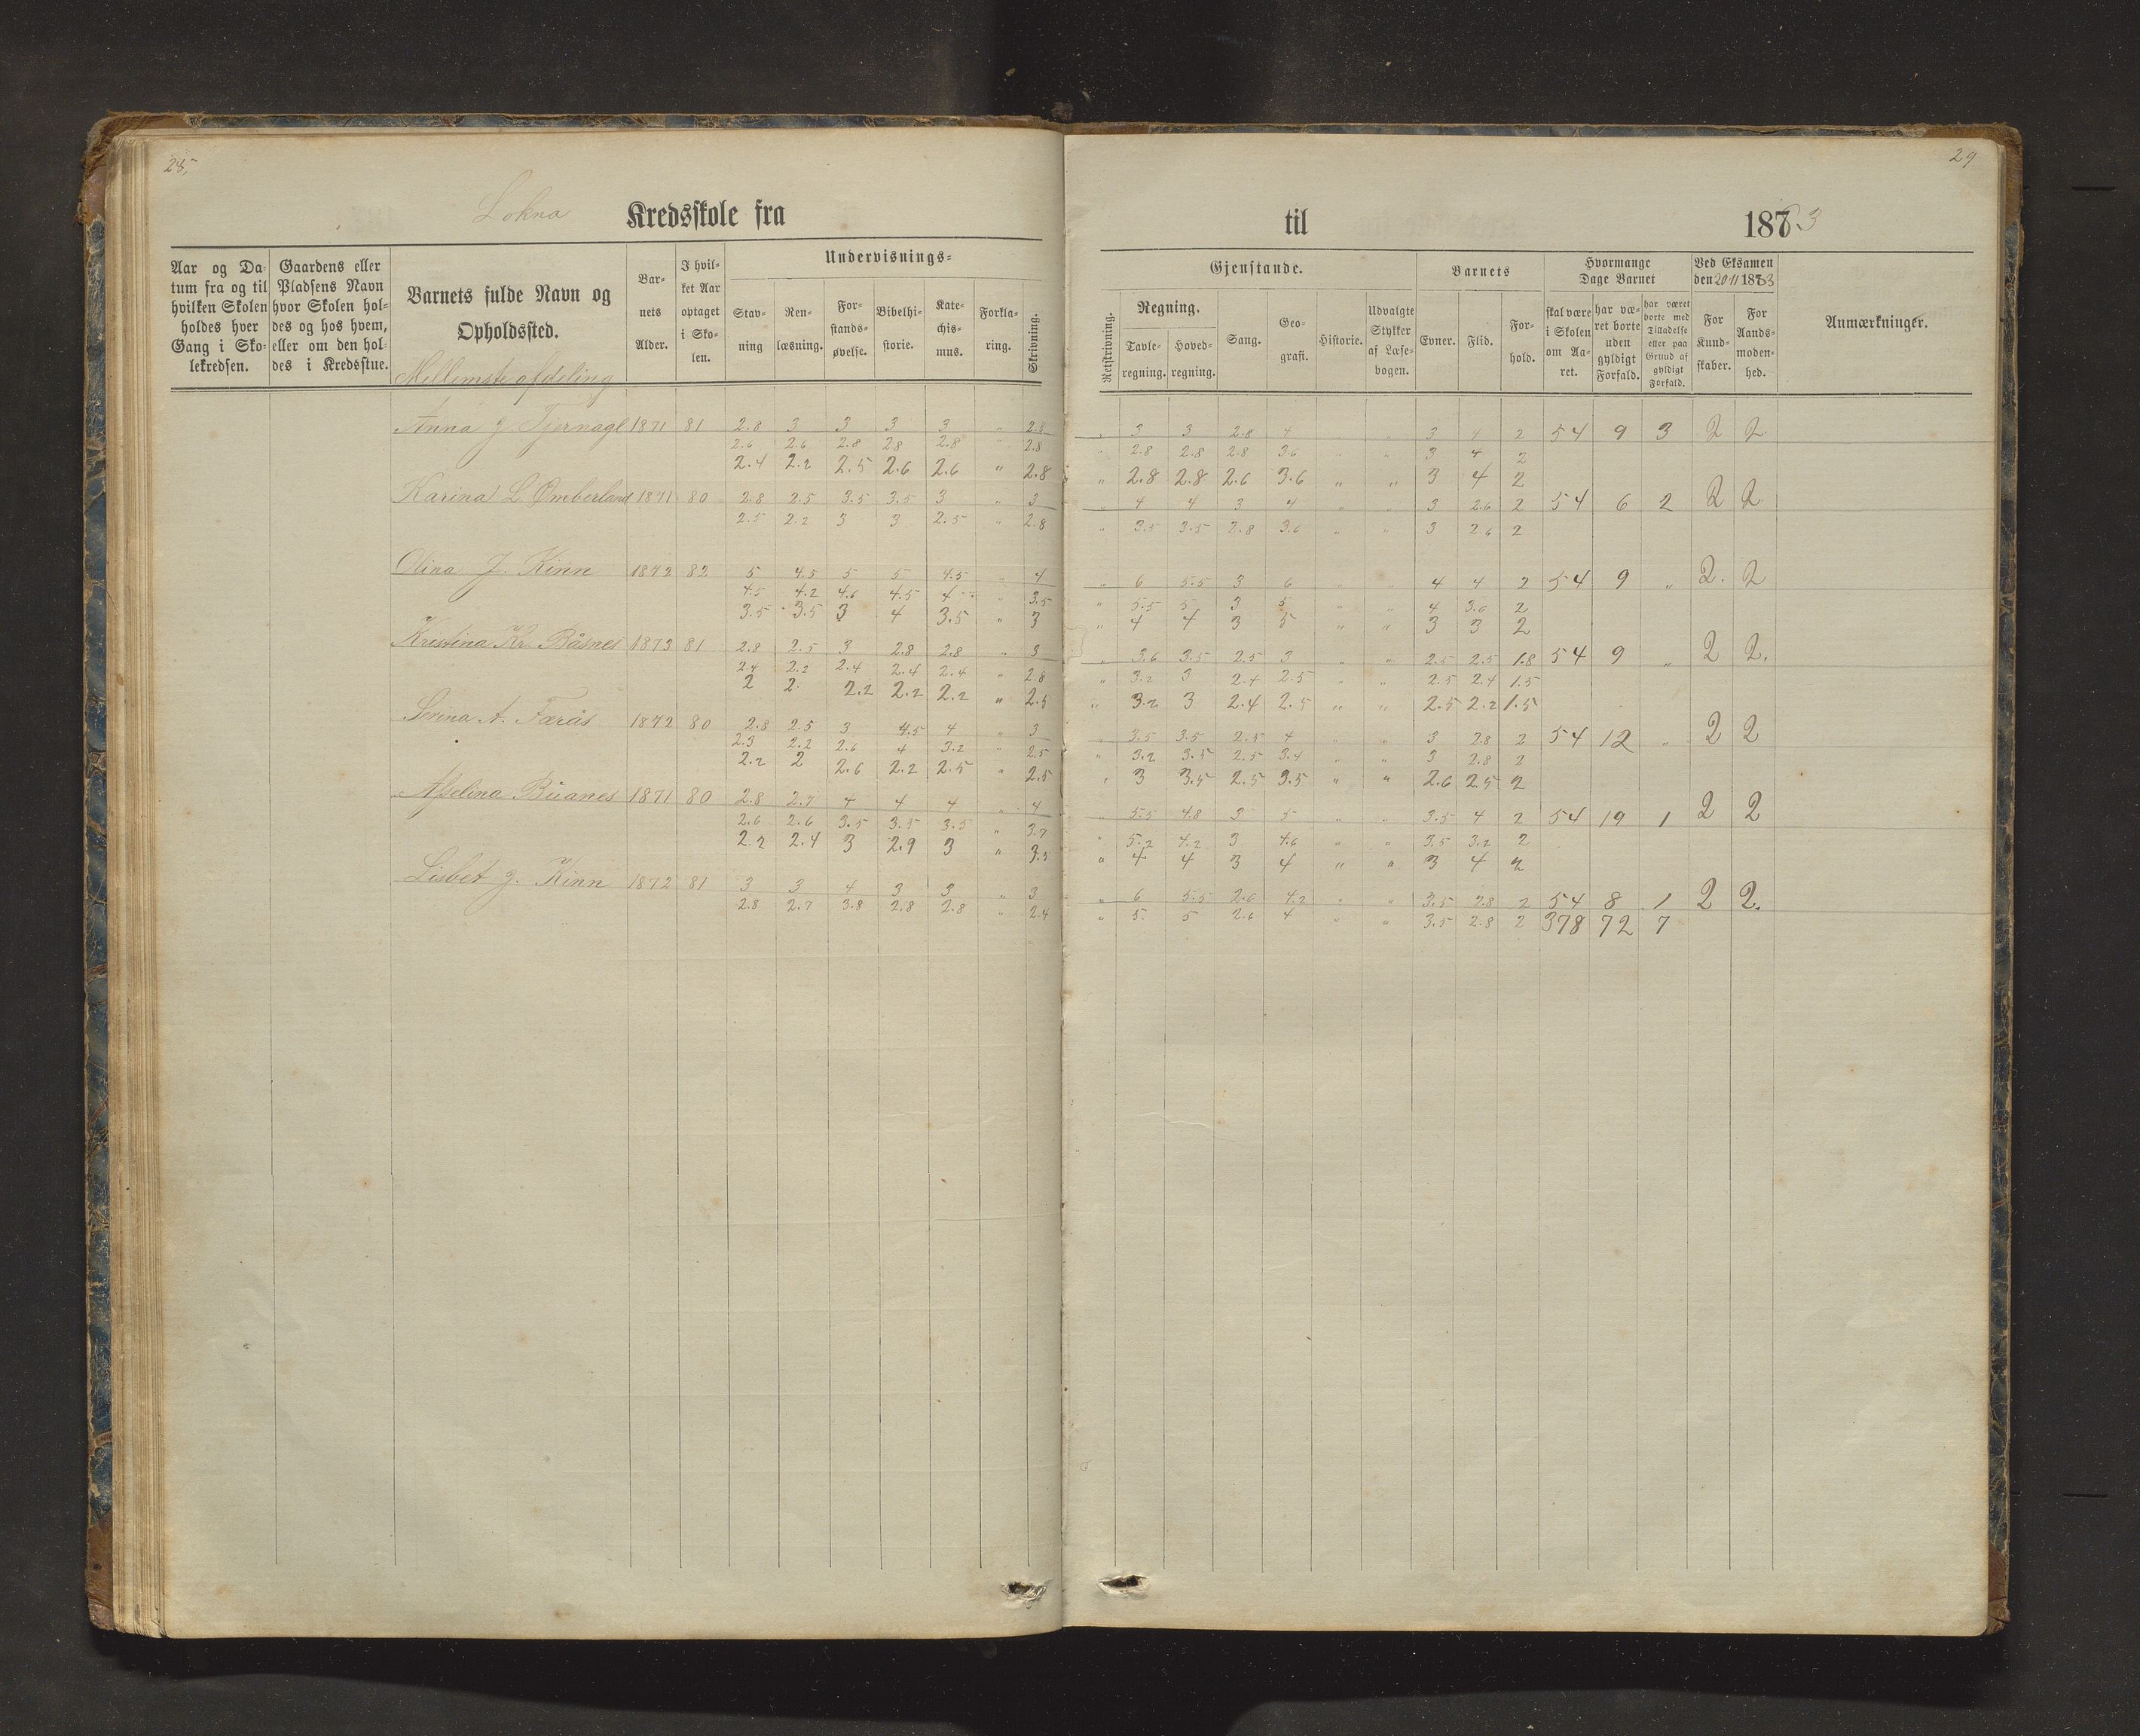 28,
29
Lokna Kredsskole fra til 1883
Aar og Datum fra og til hvilken Skolen holdes hver Gang i Skolekredsen.
Gaardens eller Pladsens Navn hvor Skolen holdes og hos hvem, eller om den holdes i Kredsstue.
Barnets fulde Navn og Opholdssted.
Barnets Alder.
I hvilket Aar optaget i Skolen.
Undervisnings-
Stavning
Renlæsning.
Forstandsøvelse.
Bibelhistorie.
Katechismus.
Forklaring.
Skrivning.
Gjenstande.
Retskrivning.
Regning.
Tavleregning.
Hovedregning.
Sang.
Geografi.
Historie.
Udvalgte Stykker af Læsebogen.
Barnets
Evner.
Flid.
Forhold.
Hvormange Dage Barnet
skal være i Skolen om Aaret.
har været borte uden gyldigt Forfald.
har været borte med Tilladelse eller paa Grund af gyldigt Forfald.
Ved Eksamen den 20 11 1883
For Kundskaber.
For Aandsmodenhed.
Anmærkninger.
Mellemste afdeling
Anna J Tjernagl 1871 81 2.8 3 3 3 3 " 2.8 " 3 3 2.8 4 " " 3 4 2 54 9 3 2 2
2.6 2.6 2.8 2.8 2.8 " 2.8 " 2.8 2.8 2.8 3.6 " " 3 4 2
2.4 2.2 2.5 2.6 2.6 " 2.8 " 2.8 2.8 2.6 3.6 " " 3 4 2
Karina L. Ømberland 1871 80 2.8 2.5 3.5 3.5 3 " 3 " 4 4 3 4 " " 3 2.6 2 54 6 2 2 2
2.5 2.2 3 3 2.5 " 2.8 " 3.5 3.5 2.8 3.6 " " 3 2.6 2
Olina J. Kinn 1872 82 5 4.5 5 5 4.5 " 4 " 6 5.5 3 6 " " 4 4 2 54 9 " 2. 2
4.5 4.2 4.6 4.5 4 " 3.5 " 5.5 5 3 5 " " 4 3.6 2
3.5 3.5 3 4 3.5 " 3 " 4 4 3 5 " " 3 3 2
Kristina Kr. Båsnes 1873 81 2.8 2.5 3 2.8 2.8 " 3 " 3.6 3.5 2.5 3 " " 2.5 2.5 1.8 54 9 " 2 2.
2.4 2.2 2.4 2.4 2.4 " 2.8 " 3.2 3 2.4 2.5 " " 2.5 2.4 1.5
2 2. 2.2 2.2 2.2 " 2.5 " 3.2 3 2.4 2.5 " " 2.5 2.2 1.5
Serina A. Færås 1872 80 2.8 2.5 3 4.5 4 " 3 " 3.5 3.5 2.5 4 " " 3 2.8 2 54 12 " 2 2
2.3 2.2 2.6 4 3.2 " 2.5 " 3.2 3.5 2.5 3.4 " " 3 2.8 2
2.2 2 2.6 2.2 2.5 " 2.5 " 3 3.5 2.5 3.5 " " 2.6 2.5 2
Asselina Buanes 1871 80 2.8 2.7 4 4 4 " 4 " 5.5 4.8 3 5 " " 3.5 4 2 54 19 1 2 2
2.6 2.6 3.5 3.5 3.5 " 3.7 " 5.2 4.2 3 4.6 " " 3.5 3.2 2
2.2 2.4 3 2.9 3 " 3.5 " 4 4 3 4 " " 3 4 2
Lisbet J. Kinn 1872 81 3 3 4 3 3 " 3 " 6 5.5 2.6 4.2 " " 3.5 2.8 2 54 8 1 2 2.
2.8 2.7 3.8 2.8 2.8 " 2.4 " 5. 5 2.6 4 " " 3.5 2.8 2 378 72 7